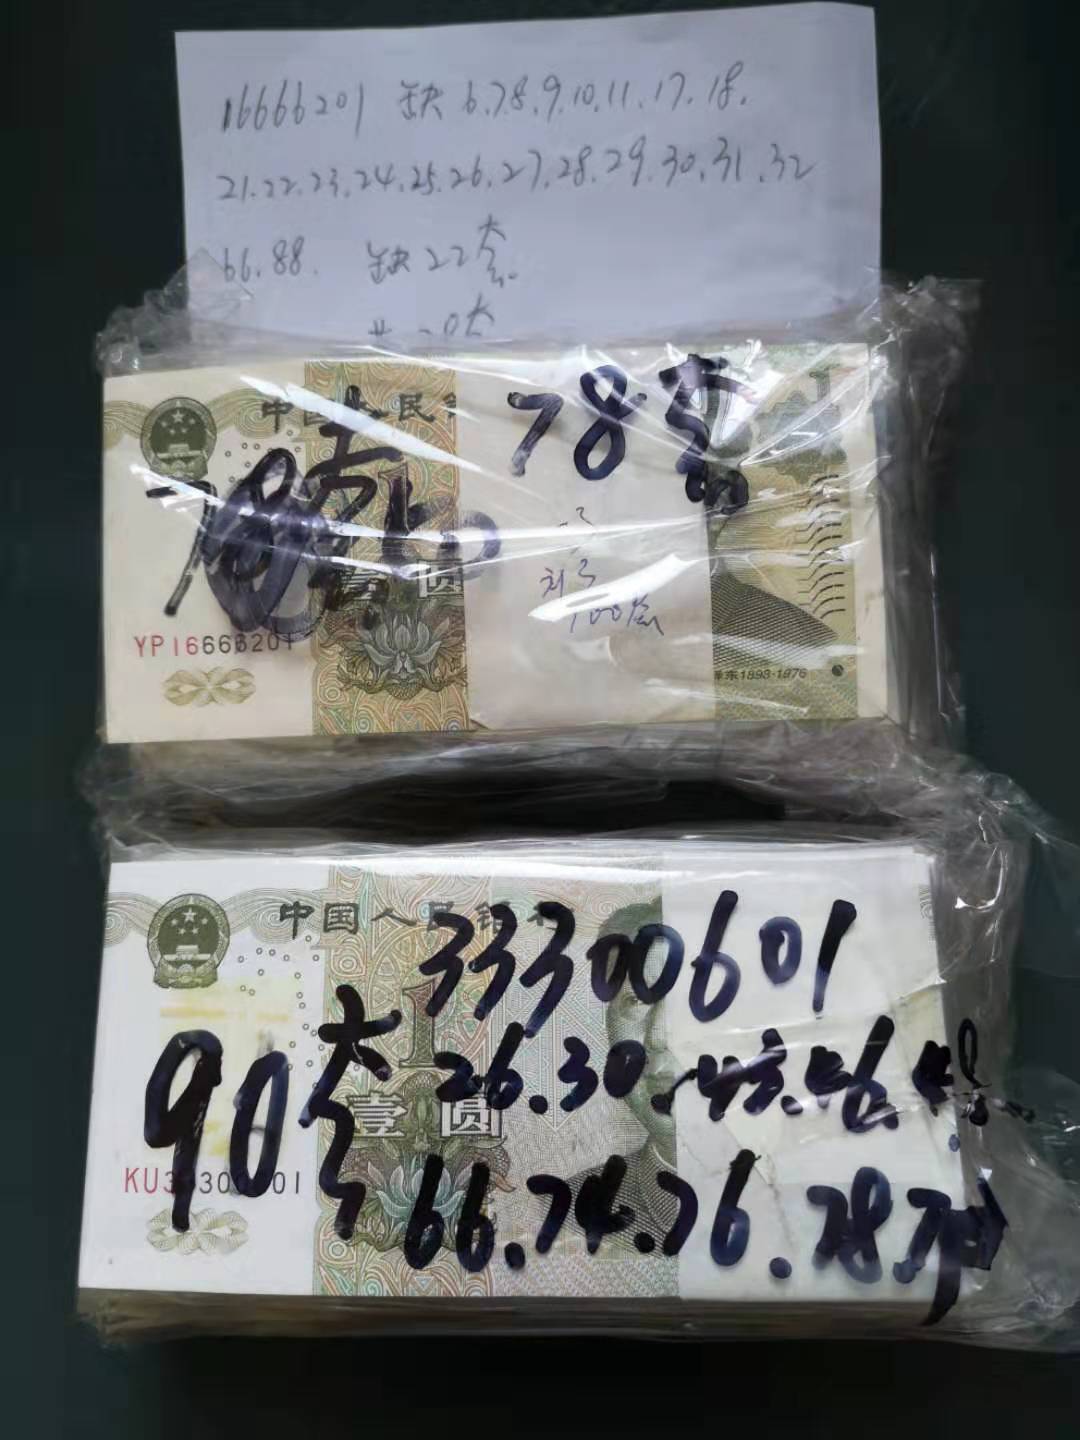 16666201 缺 6.7.8.9.10.11.17.18.
21.22.23.24.25.26.27.28.29.30.31.32
66.88. 缺22套.
78套
中国人民
壹 圆
100套
YP16666201
泽东1893-1976
中国人民银行
33300601
90套
26.30.43.46.48.
壹 圆
KU33300601
66.74.76.78.79